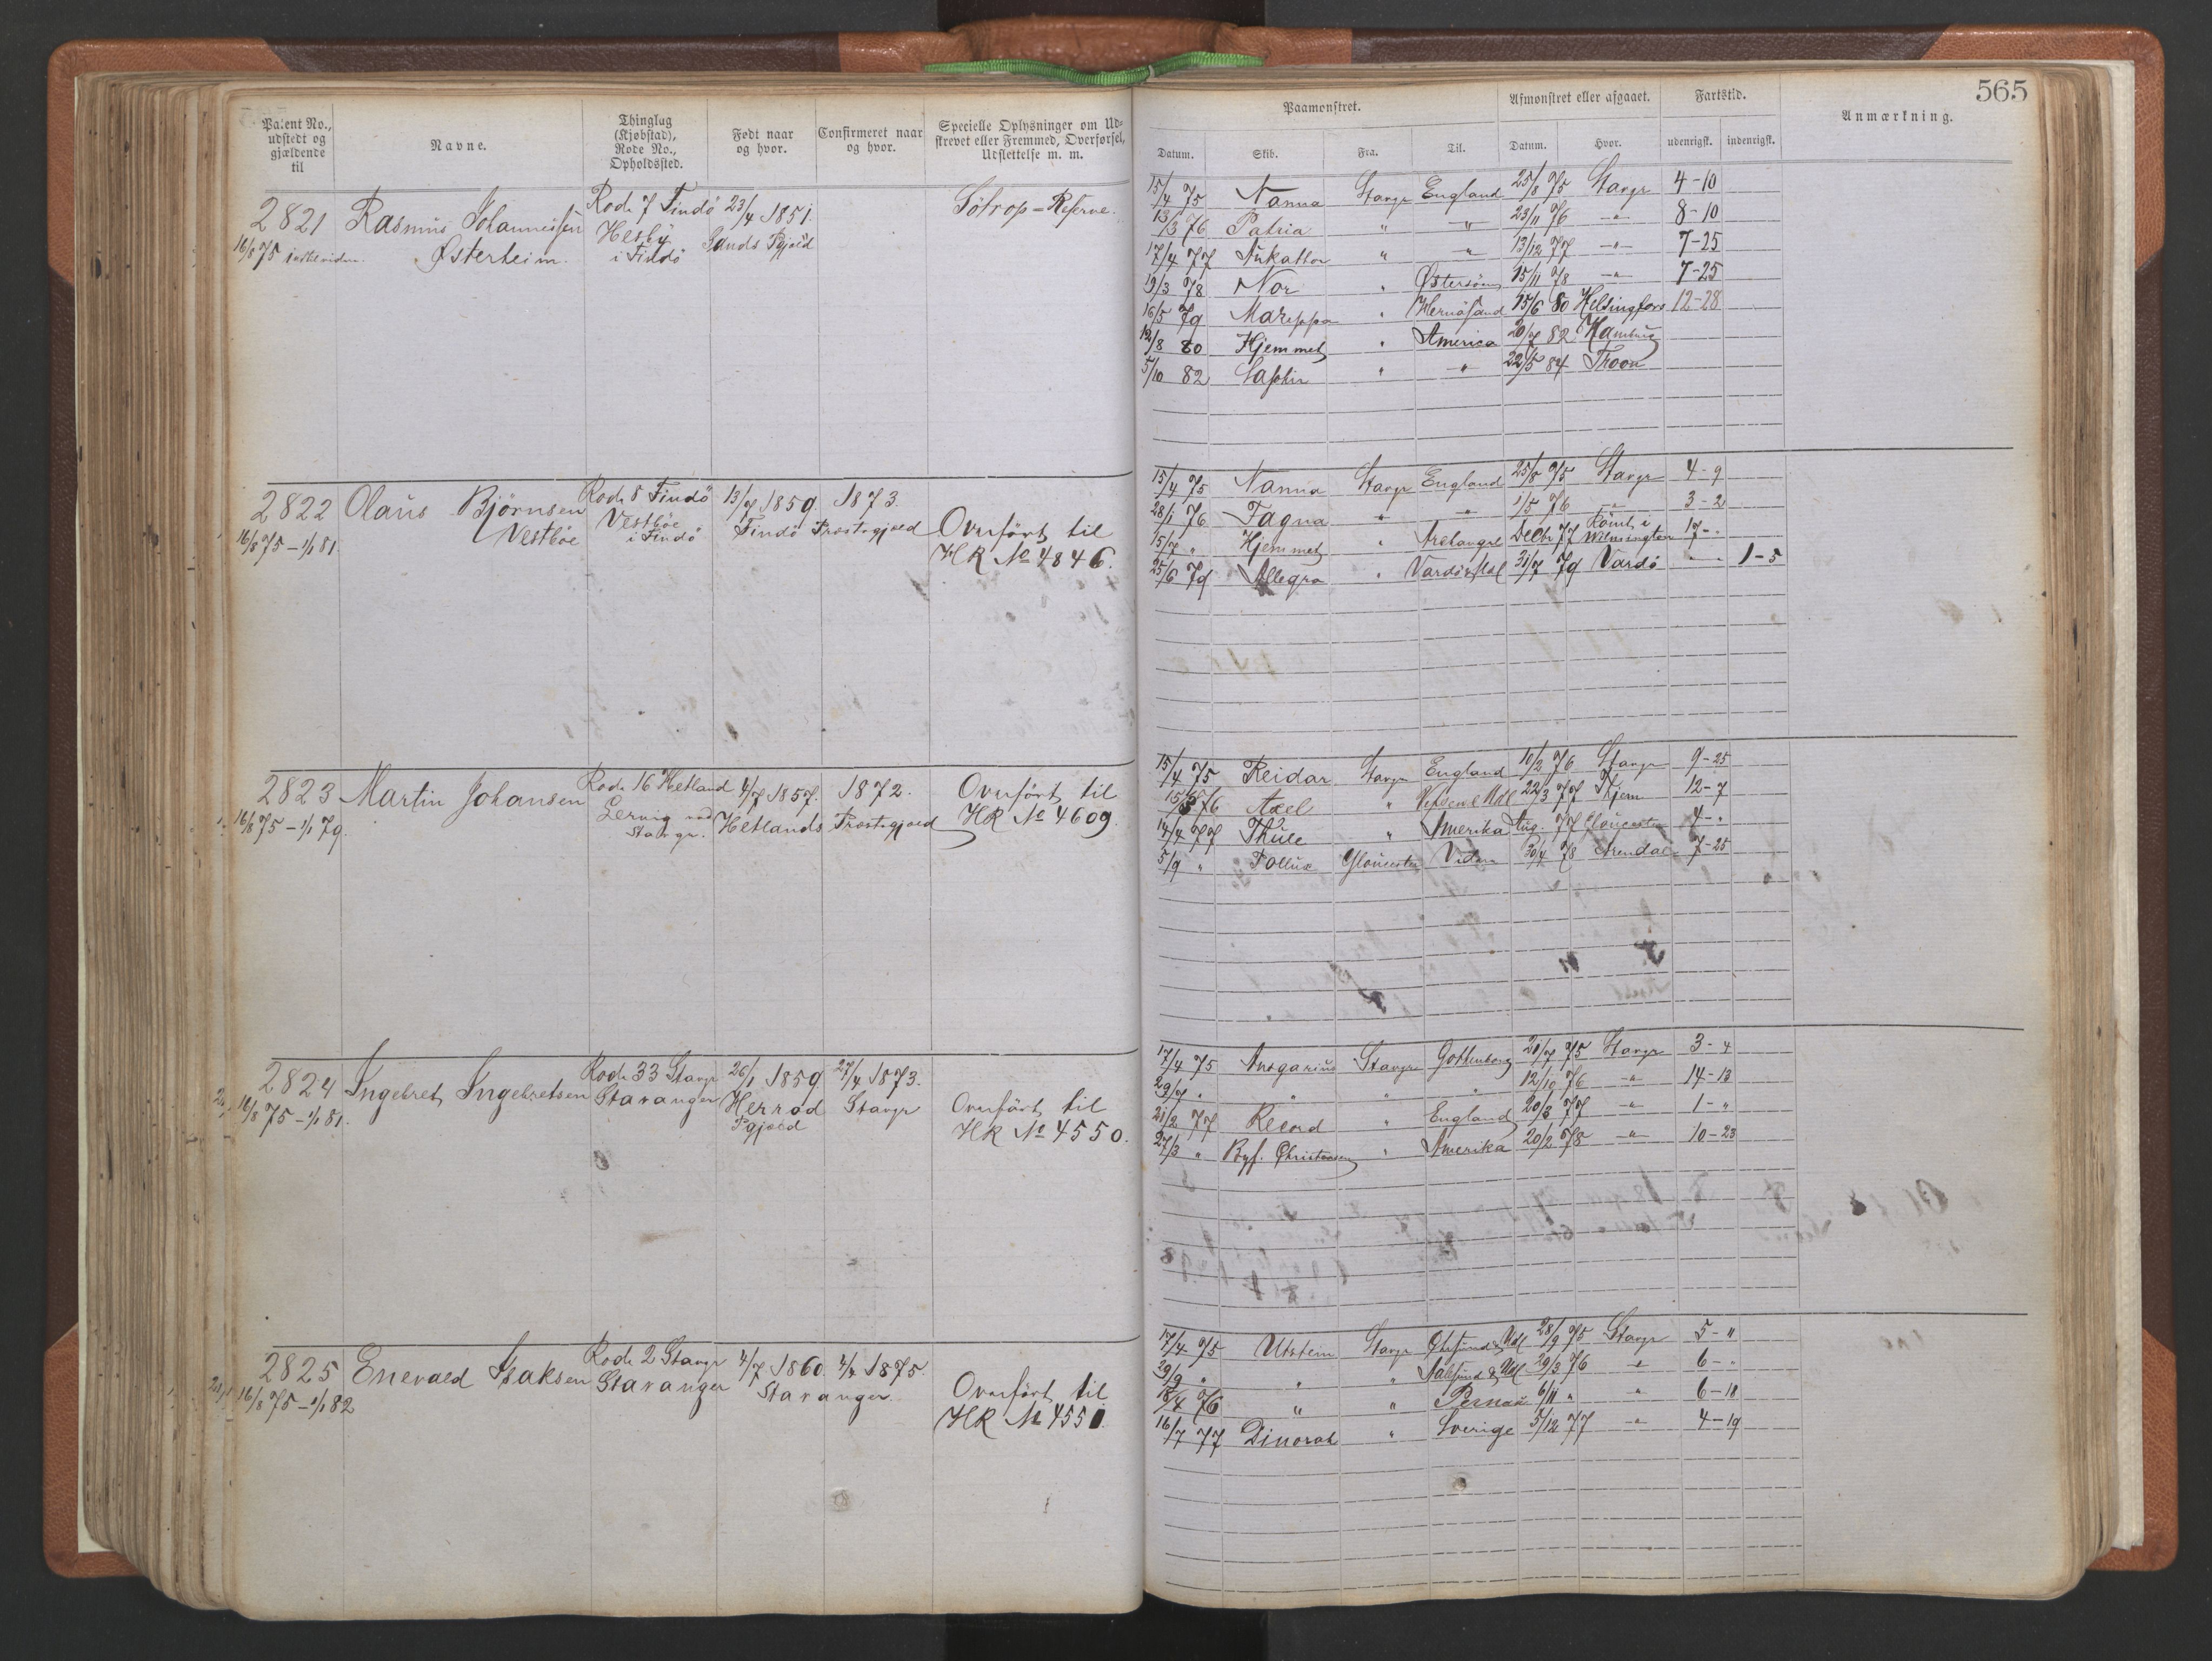 565
Patent No., udstedt og gjældende til
Navne.
Thinglag (Kjøbstad), Rode No., Opholdssted.
Født naar og hvor.
Confirmeret naar og hvor.
Specielle Oplysninger om Udskrevet eller Fremmed, Overførsel, Udslettelse m. m.
Paamønstret.
Afmønstret eller afgaaet.
Fartstid.
Anmærkning.
Datum. Skib. Fra. Til. Datum. Hvor. udenrigsk. indenrigsk.
2821 Rasmus Johannessen Rode 7 Findö 23/4 1851. Søtrop-Reserve.
16/8 75 Østerheim. Hesby i Findö Sands Pgjæld
15/4 75 Nanna Stavgr England 25/8 75 Stavgr 4-10
13/3 76 Patria " " 23/11 76 -"- 8-10
17/4 77 " " 13/12 77 -"- 7-25
19/3 78 Nor " Østersöen 15/11 78 -"- 7-25
16/5 79 " Hernösand 15/6 80 Helsingfors 12-28
12/8 80 Hjemmet " America 20/7 82 Hamburg
5/10 82 " -"- 22/5 84 Troon
2822 Olaus Bjørnsen Rode 8 Findö 13/7 1859 1873.
16/8 75 - 1/1 81. Vestböe Vestböe i Findö Findö Præstegjæld Overført til
HR No 4846.
15/4 75 Nanna Stavgr England 25/8 75 Stavgr 4-9
28/1 76 Fagna " " 1/5 76 -"- 3-2
15/7 " Hjemmet " Archangel Decbr 77 Römt i Wilmington 17-"
25/6 79 Allegra " Vardö & Udl 31/7 79 Vardö - - 1-5
2823 Martin Johansen Rode 16 Hetland 4/7 1857. 1872. Overført til
16/8 75 - 1/1 79. Lervig ved Stavgr. Hetlands Præstegjæld HR No 4609.
15/4 75 Reidar Stavgr England 10/2 76 Stavgr 9-25
15/3 76 Axel " 22/3 77 Hjem 12-7
14/4 77 Thule " Amerika Aug. 77 Gloucester 4-"
5/9 " Pollux Gloucester 30/4 78 Arendal 7-25
2824 Ingebret Ingebretsen Rode 33 Stavgr 26/1 1859 27/4 1873.
16/8 75 - 1/1 81. Stavanger Herröd Pgjæld Stavgr Overført til
HR No 4550.
17/4 75 Ansgarius Stavgr Gothenborg 21/7 75 Stavgr 3-4
29/7 " " " " 12/10 76 -"- 14-13
21/2 77 Record " England 20/3 77 -"- 1-"
27/3 " Bgf. Christensen " Amerika 20/2 78 -"- 10-23
2825 Enevald Isaksen Rode 2 Stavgr 4/7 1860 4/4 1875.
16/8 75 - 1/1 82 Stavanger Stavanger. Overført til
HR No 4551.
17/4 75 Utstein Stavgr & Udl 28/9 75 Stavgr 5-"
29/9 " " " Aalesund & Udl 29/3 76 " 6-"
18/4 76 " " Pernau 6/11 " " 6-18
16/7 77 Dinorah " Sverige 5/12 77 -"- 4-19